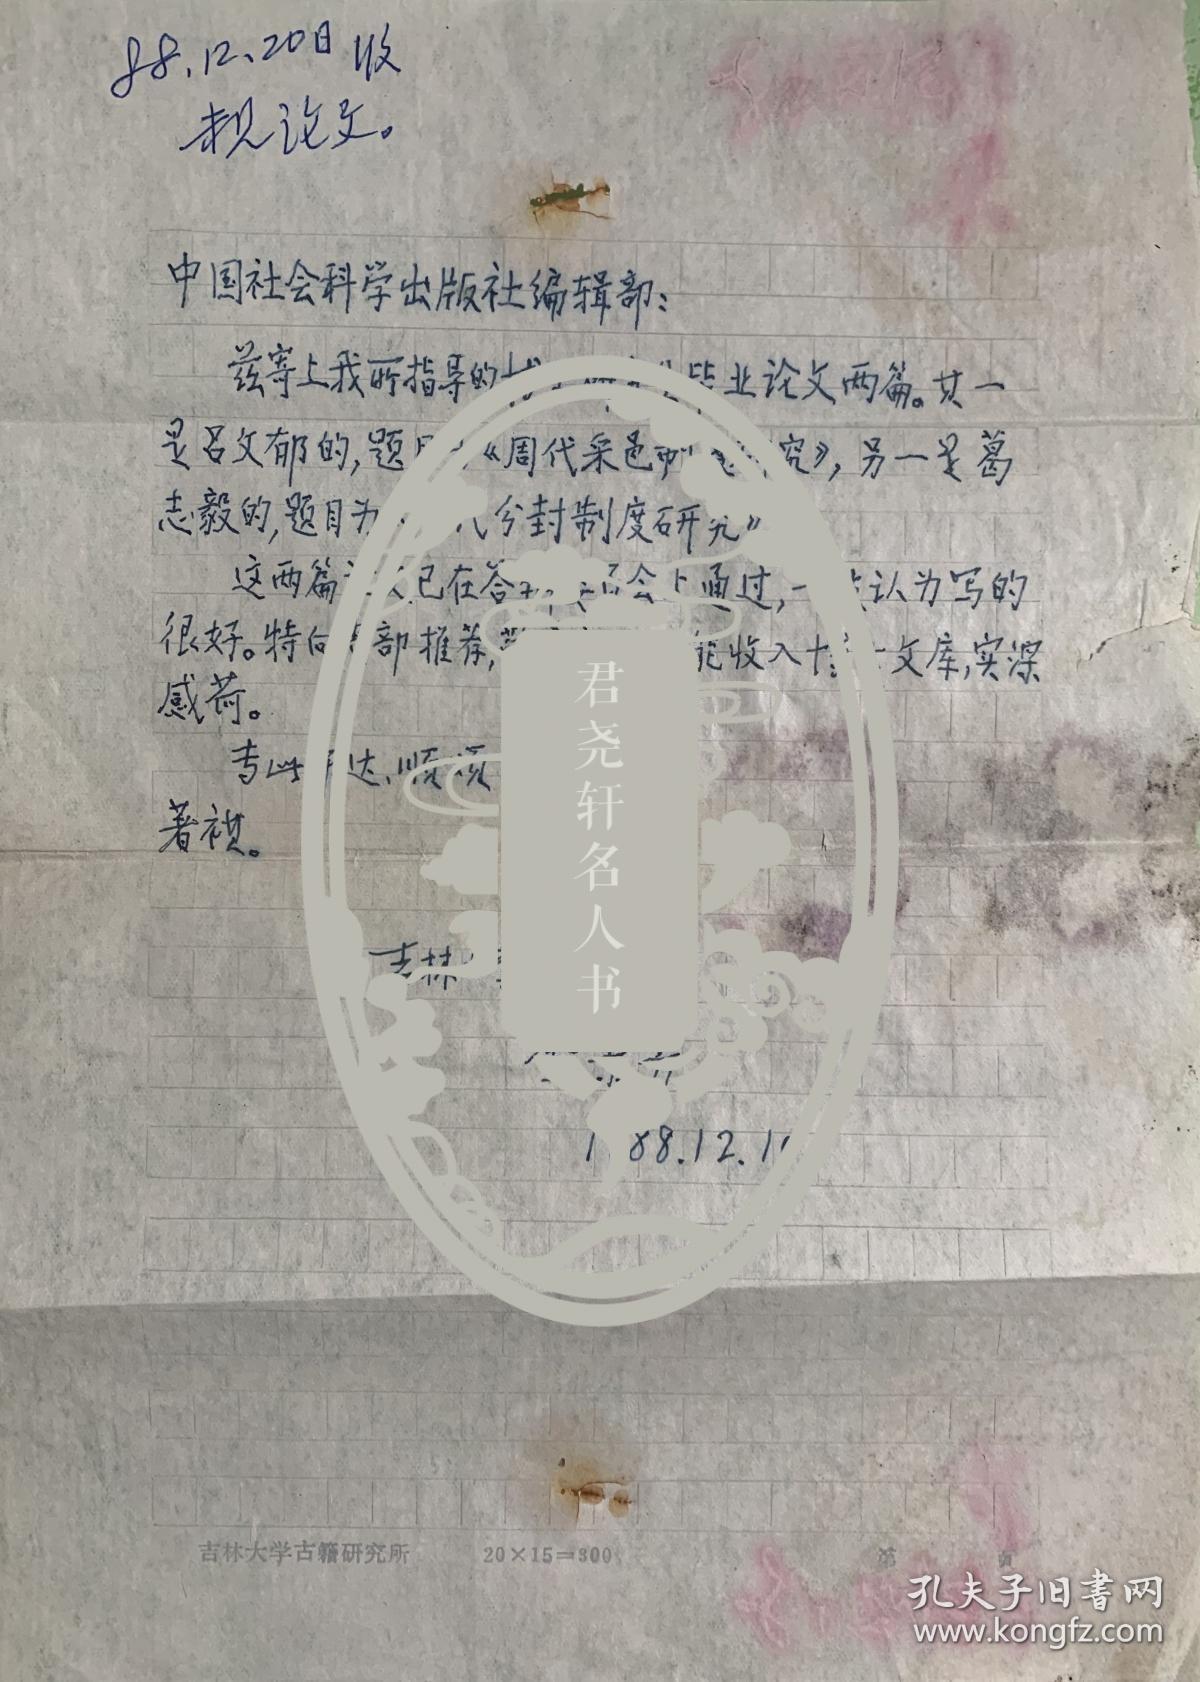 88.12.20日收
未见论文。
中国社会科学出版社编辑部：
兹寄上我所指导的 毕业论文两篇。其一
是吕文郁的,题目 《周代采邑制 究》,另一是葛
志毅的,题目为 代分封制度研究》
这两篇 已在答 会上通过,一 认为写的
很好。特向 部推荐, 能收入 文库,实深
感荷。
专此 达、顺颂
著祺。
吉林
1988.12.1
君尧轩名人书
吉林大学古籍研究所 20×15=300 第 页
孔夫子旧书网
www.kongfz.com